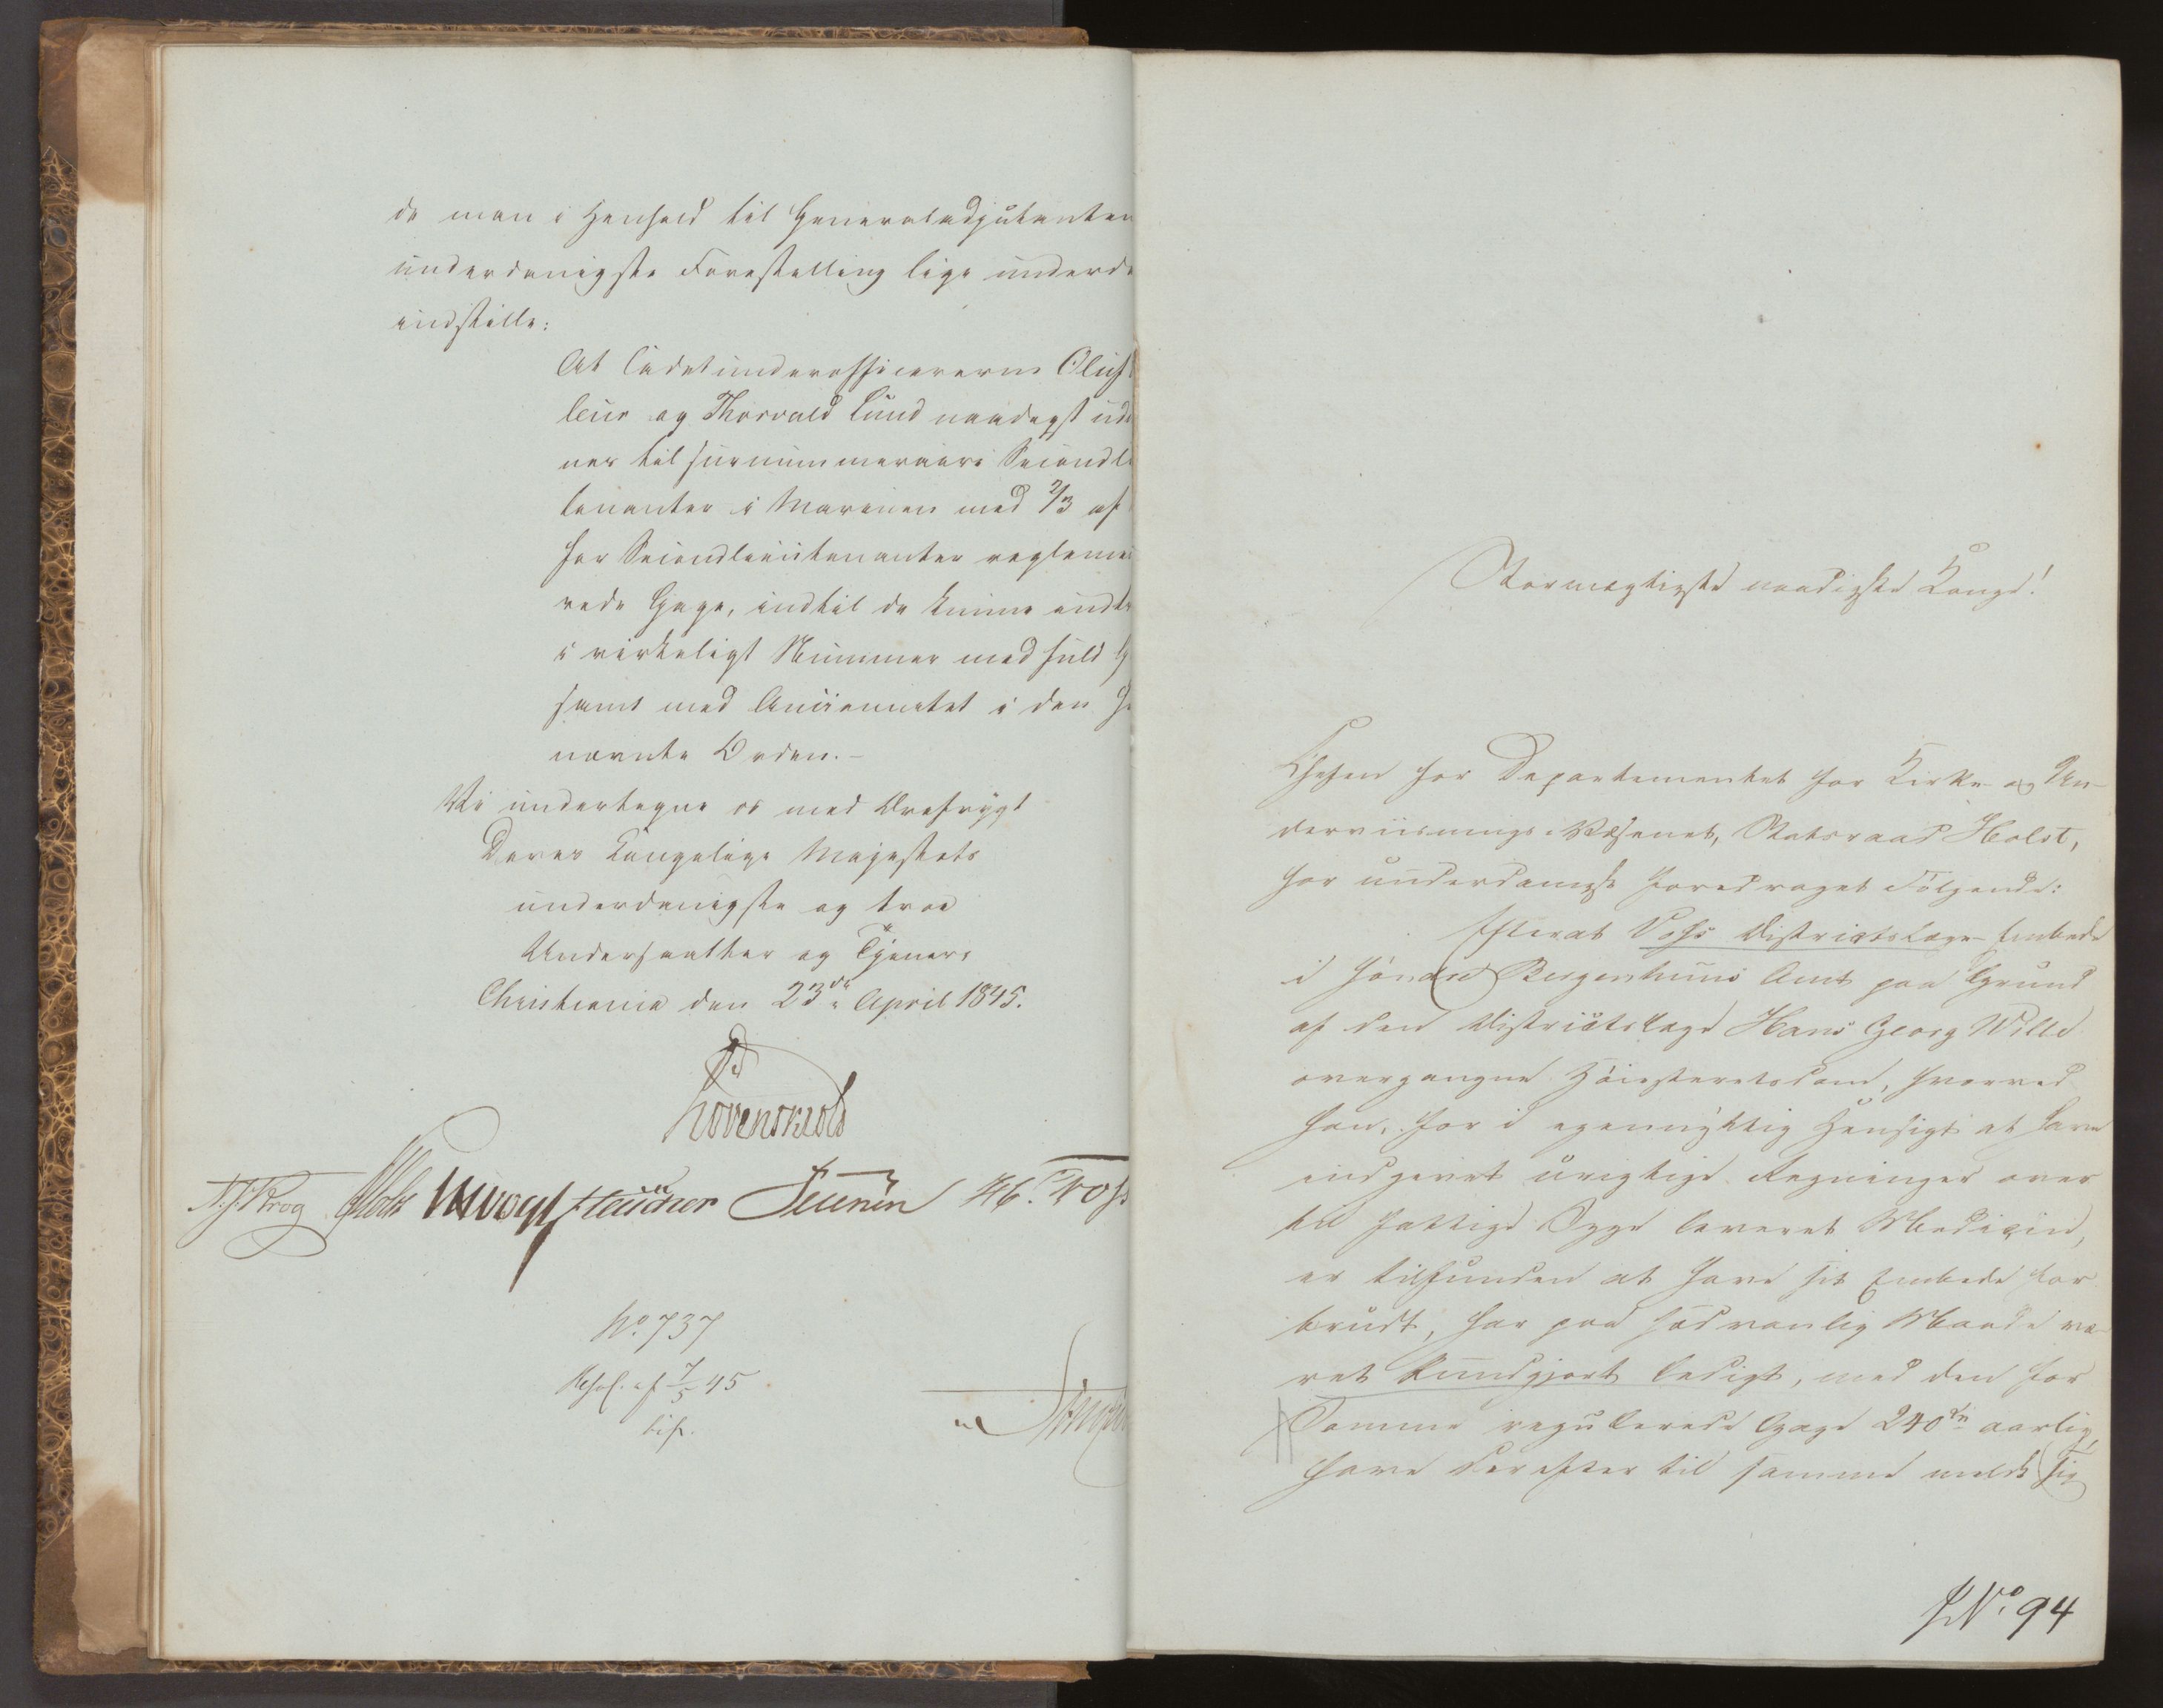 da man i Henhold til Generaladjutanten
underdanigste Forestilling lige underda
indstille:
At Cadetunderofficererne Oluf
leur og Thorvald Lund naadigst ud
nes til surnummeraire Secondl
tenanter i Marinen med 2/3 af
for Secondlieutenanter reglemen
rede Gage, indtil de kunne indtr
i virkeligt Nummer med fuld G
samt med Anciennitet i den
nævnte Orden.-
Vi undertegne os med Ærefrygt
Deres Kongelige Majestæts
underdanigste og troe
Undersaatter og Tjenere
Christiania den 23de April 1845.
Løvenskiold
N. J. Krog Holst JHVogt
No. 737
Resol. af 7/5 45
Stormægtigste naadigste Konge!
Chefen for Departementet for Kirke- og Un-
derviisnings-Væsenet, Statsraad Holst,
har underdanigst foredraget Følgende:
Efterat Voss Districtslæge-Embede
i søndre Bergenhuus Amt paa Grund
af den Districtslæge Hans Georg Wille
overgangne Høiesteretsdom, hvorved
han, for i egennyttig Hensigt at have
indgivet urigtige Regninger over
til fattige Syge leveret Medicin,
er tilfunden at have sit Embede for-
brudt, har paa sædvanlig Maade væ-
ret kundgjort ledigt, med den for
Samme regulerede Gage 240 Spd aarlig,
have derefter til samme meldt sig
No. 94